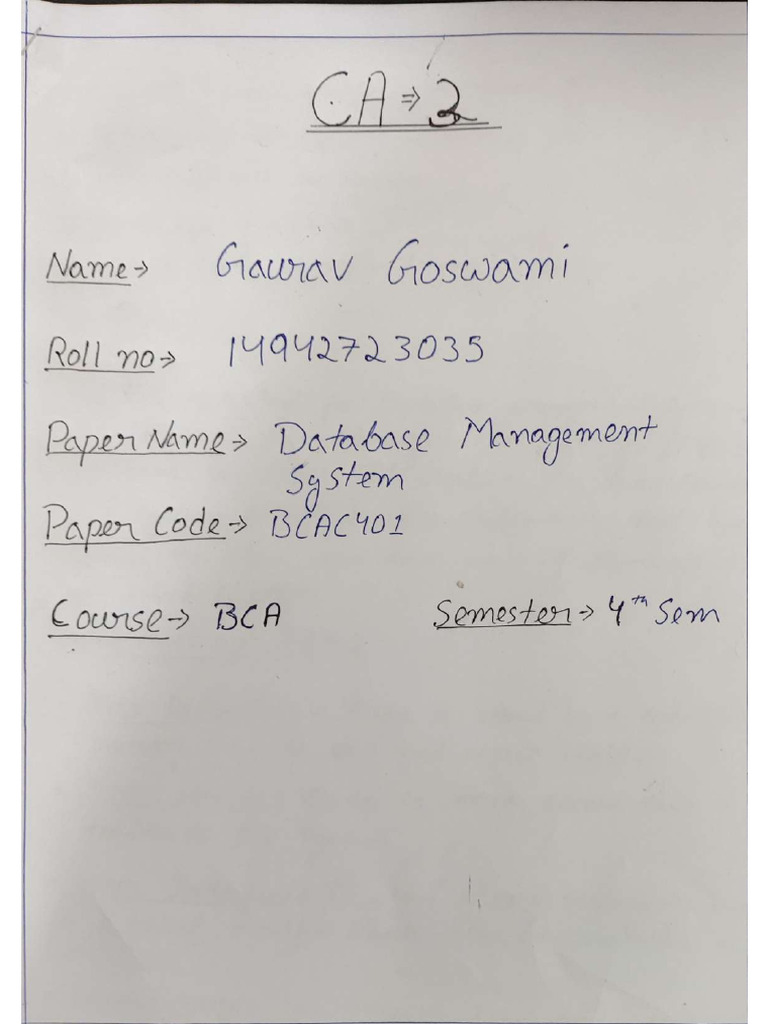 CA ⇒ 2
Name → Gaurav Goswami
Roll no → 14942723035
Paper Name → Database Management
System
Paper Code → BCAC401
Course → BCA Semester → 4th Sem